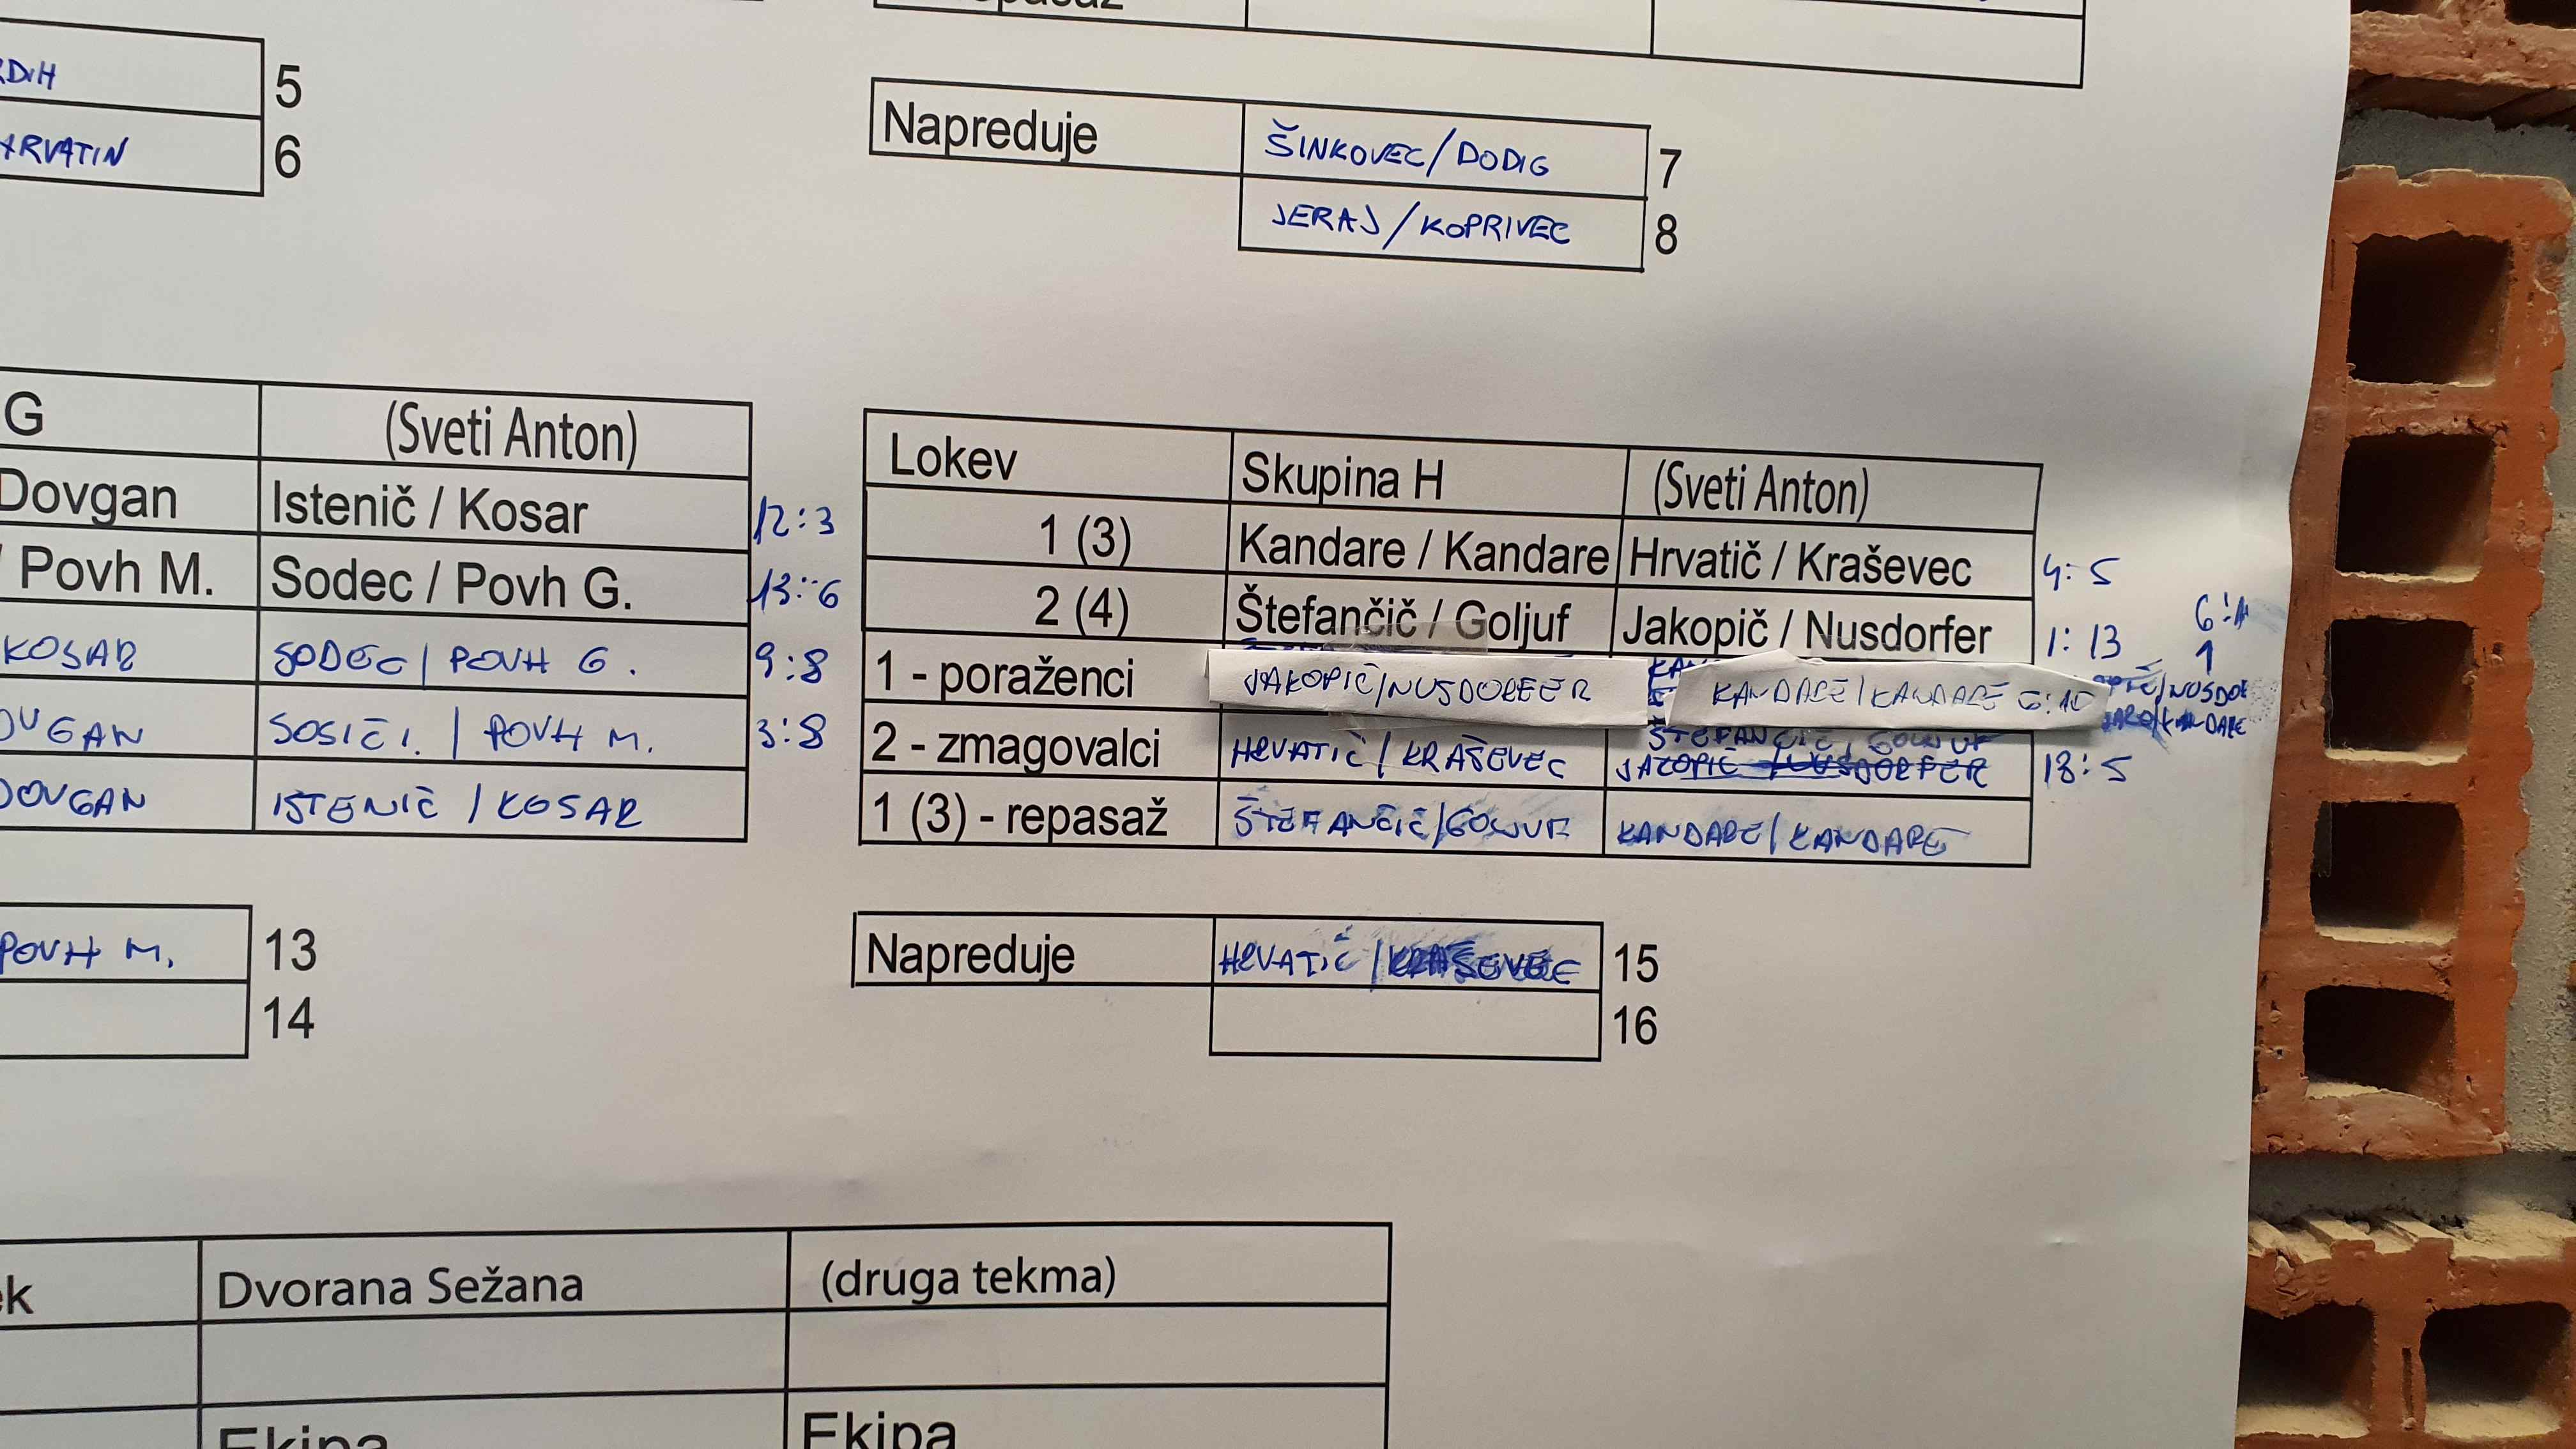 RDIH 5
HRVATIN 6
Napreduje ŠINKOVEC/DODIG 7
JERAJ/KOPRIVEC 8
G (Sveti Anton)
Dovgan Istenič / Kosar 12:3
/ Povh M. Sodec / Povh G. 13:6
KOSAR SODEC / POVH G. 9:8
OVGAN SOSIČ I. / POVH M. 3:8
DOVGAN ISTENIČ / KOSAR
POVH M. 13
14
Lokev Skupina H (Sveti Anton)
1 (3) Kandare / Kandare Hrvatič / Kraševec 4:5
2 (4) Štefančič / Goljuf Jakopič / Nusdorfer 1:13
1 - poraženci JAKOPIČ/NUSDORFER KANDARE/KANDARE
2 - zmagovalci HRVATIČ / KRAŠEVEC ŠTEFANČIČ / GOLJUF
JAKOPIČ / NUSDORFER 13:5
1 (3) - repasaž ŠTEFANČIČ/GOLJUF KANDARE/KANDARE
Napreduje HRVATIČ / KRAŠEVEC 15
16
Dvorana Sežana (druga tekma)
Ekipa Ekipa